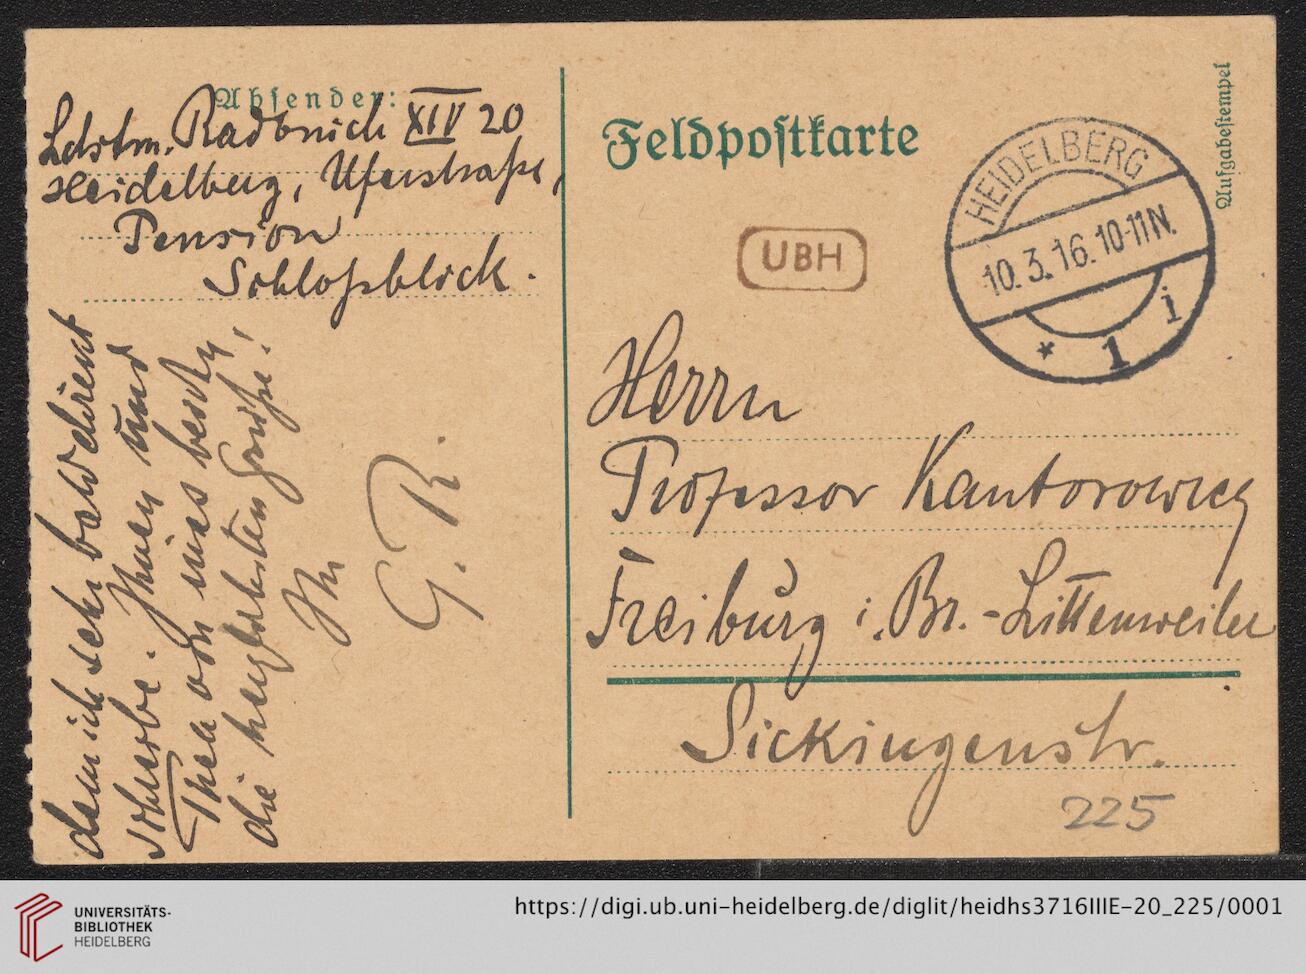 Absender:
Ldstm. Radbruch XIV 20
Heidelberg, Uferstraße,
Pension
Schloßblick.
dem ich sehr bald direkt
schreibe. Ihnen und
Thea von uns beiden
die herzlichsten Grüße!
Ihr
G. R.
Feldpostkarte
Aufgabestempel
HEIDELBERG
10.3.16.10-11N.
* 1 i
UBH
Herrn
Professor Kantorowicz
Freiburg i. Br.-Littenweiler
Sickingenstr.
225
UNIVERSITÄTS-
BIBLIOTHEK
HEIDELBERG
https://digi.ub.uni-heidelberg.de/diglit/heidhs3716IIIE-20_225/0001